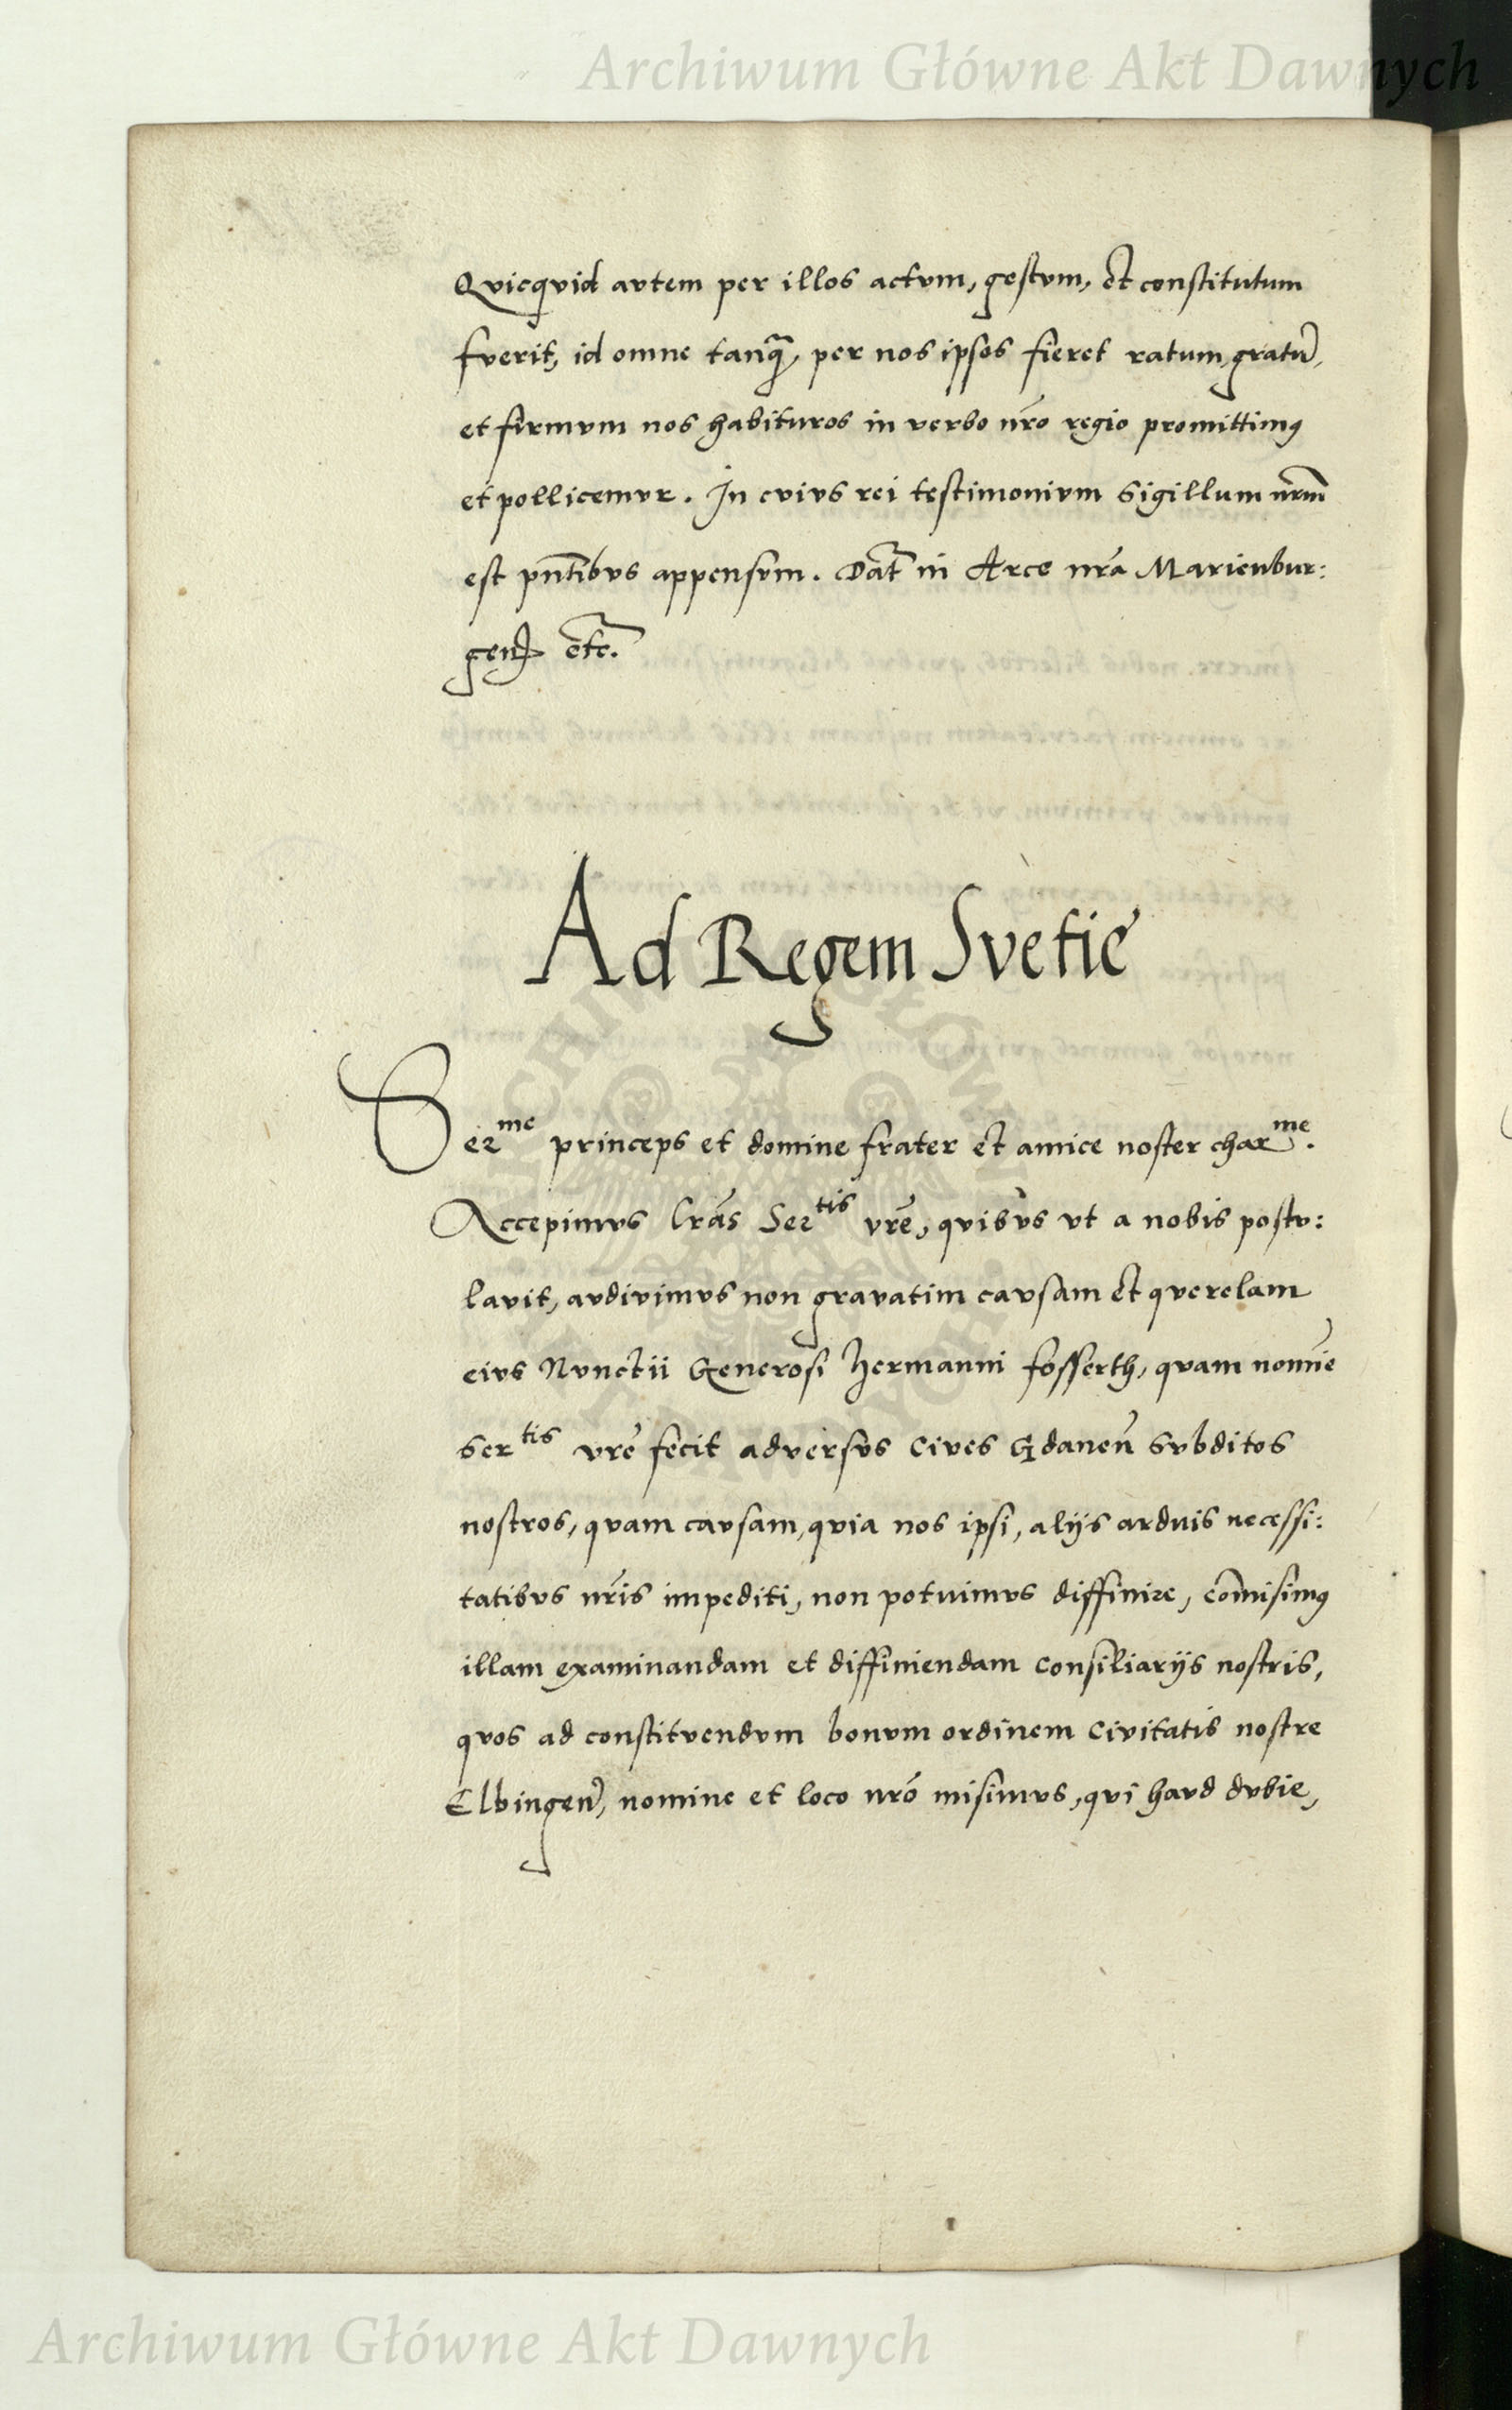 Archiwum Główne Akt Dawnych
Qvicqvid avtem per illos actvm, gestvm, et constitutum
fverit, id omne tanq̃, per nos ipsos fieret ratum, gratũ,
et firmvm nos habituros in verbo nr̃o regio promittimꝰ
et pollicemvr. In cvivs rei testimonivm Sigillum nr̃m
est pñtibvs appensvm. Dat̃ in Arce nr̃a Marienbur:
geñ etc̃.
Ad Regem Svetie
Serᵐᵉ princeps et domine frater et amice noster charᵐᵉ.
Accepimvs lr̃as Serᵗⁱˢ vr̃e, qvibvs vt a nobis postv:
lavit, avdivimvs non gravatim cavsam et qverelam
eivs Nvnctii Generosi Hermanni fosserth, qvam nomĩe
Serᵗⁱˢ vr̃e fecit adversvs Cives Gdaneñ Svbditos
nostros, qvam cavsam, qvia nos ipsi, alijs ardvis necessi:
tatibvs nr̃is impediti, non potvimvs diffinire, com̃isimꝰ
illam examinandam et diffiniendam Consiliarijs nostris,
qvos ad constitvendvm bonvm ordinem Civitatis nostre
Elbingeñ, nomine et loco nr̃o misimvs, qvi havd dvbie,
Archiwum Główne Akt Dawnych